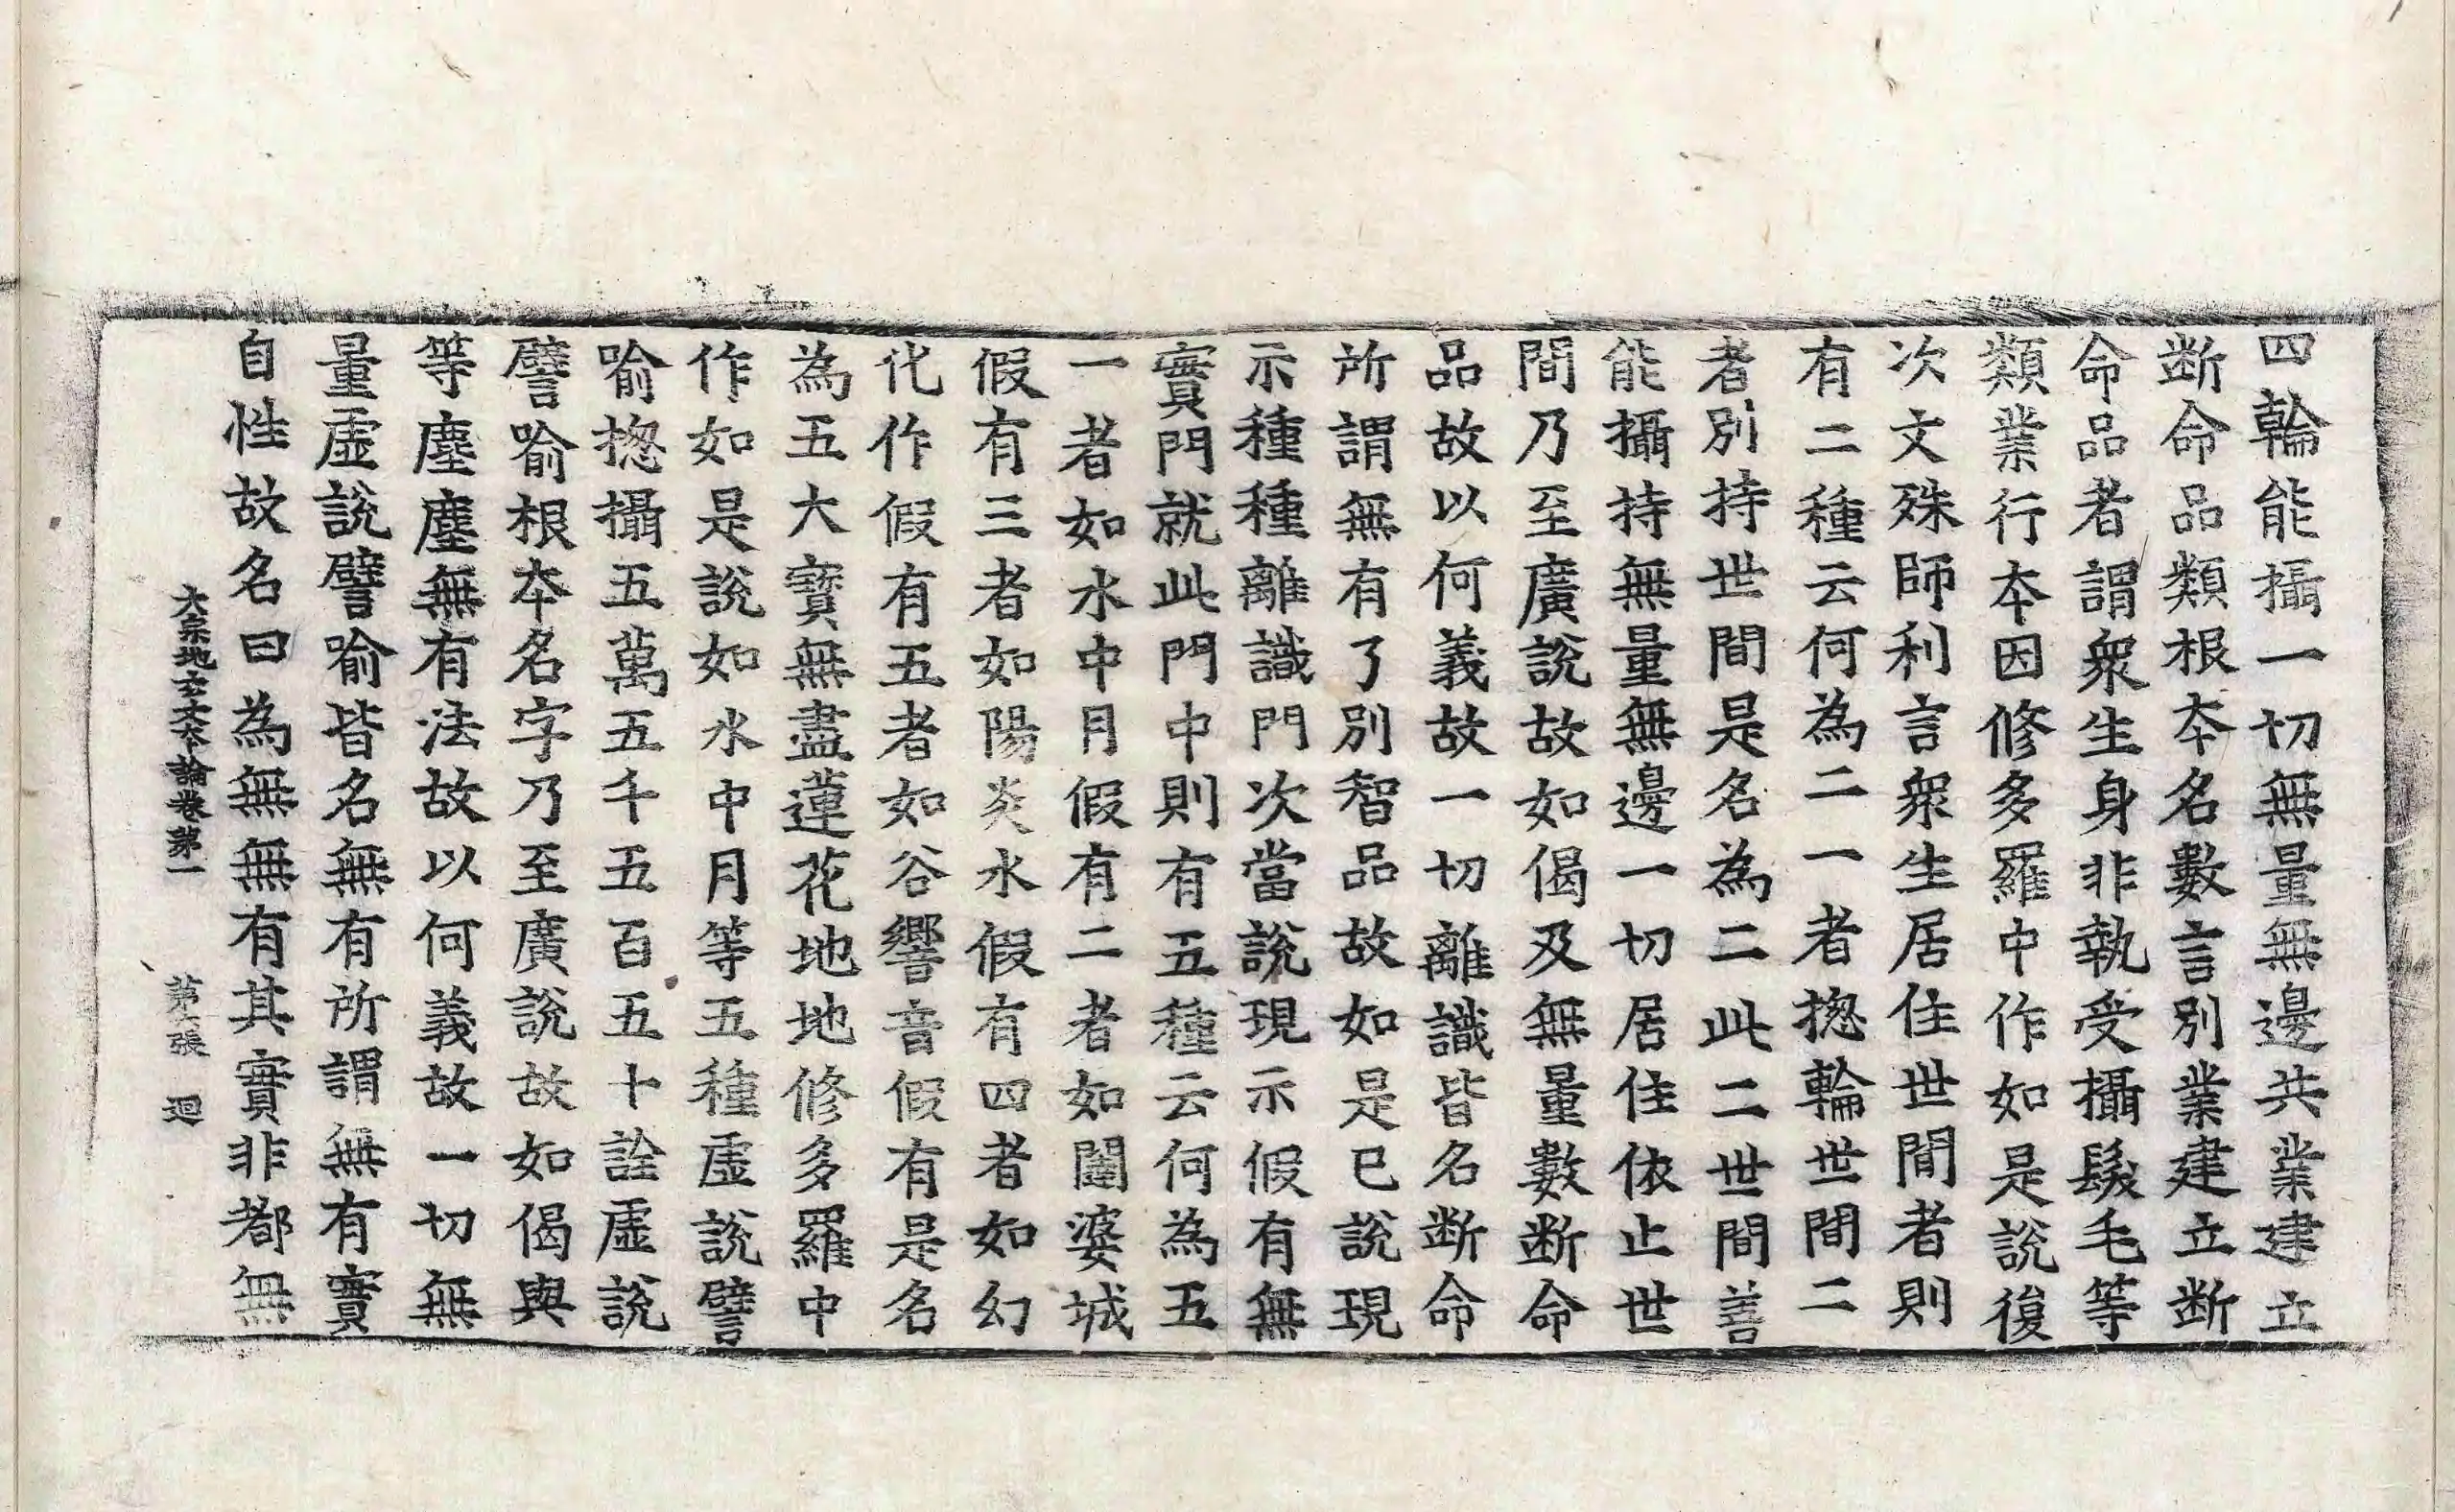 四輪能攝一切無量無邊共業建立
断命品類根夲名數言別業建立断
命品者謂衆生身非執受攝髮毛等
類業行夲因修多羅中作如是說復
次文殊師利言衆生居住世間者則
有二種云何為二一者揔輪世間二
者別持世間是名為二此二世間善
能攝持無量無邊一切居住依止世
間乃至廣說故如偈及無量數断命
品故以何義故一切離識皆名断命
所謂無有了別智品故如是已說現
示種種離識門次當說現示假有無
實門就此門中則有五種云何為五
一者如水中月假有二者如闥婆城
假有三者如陽炎水假有四者如幻
化作假有五者如谷響音假有是名
為五大寶無盡蓮花地地修多羅中
作如是說如水中月等五種虛說譬
喻揔攝五萬五千五百五十詮虛說
譬喻根夲名字乃至廣說故如偈與
等塵塵無有法故以何義故一切無
量虛說譬喻皆名無有所謂無有實
自性故名曰為無無有其實非都無
大宗地玄文夲論卷第一 第六張 迴